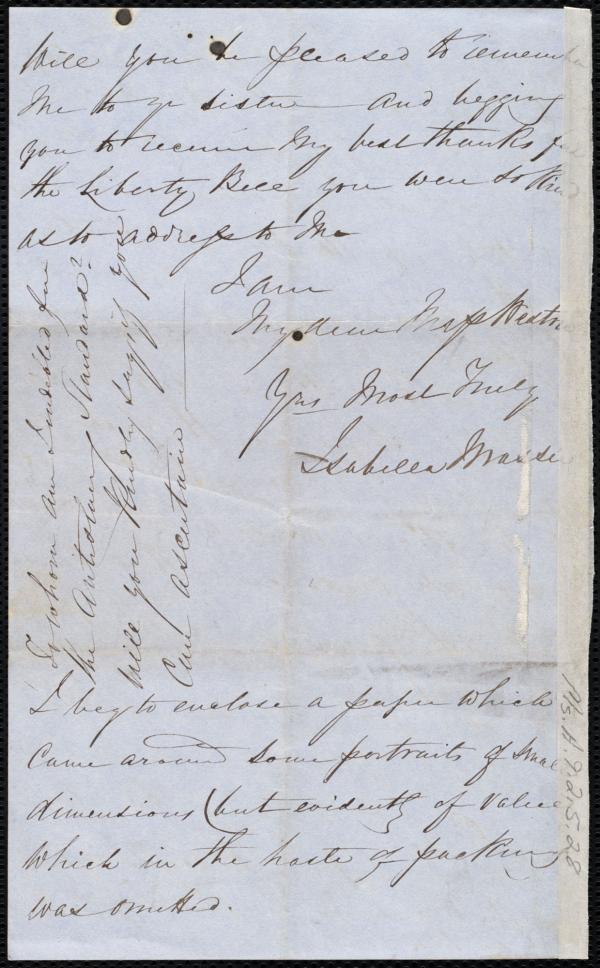 Will you be pleased to remember
me to yr sister and begging
you to receive my best thanks for
the Liberty Bell you were so kind
as to address to me
I am
My dear Miss Weston
Yrs Most Truly
Isabella Massie
To whom am I indebted for
the Antislavery Standard?
Will you kindly say if you
can ascertain
I beg to enclose a paper which
came around some portraits of small
dimensions (but evidently of value
which in the haste of packing
was omitted.
Ms.A.9.2.5.28